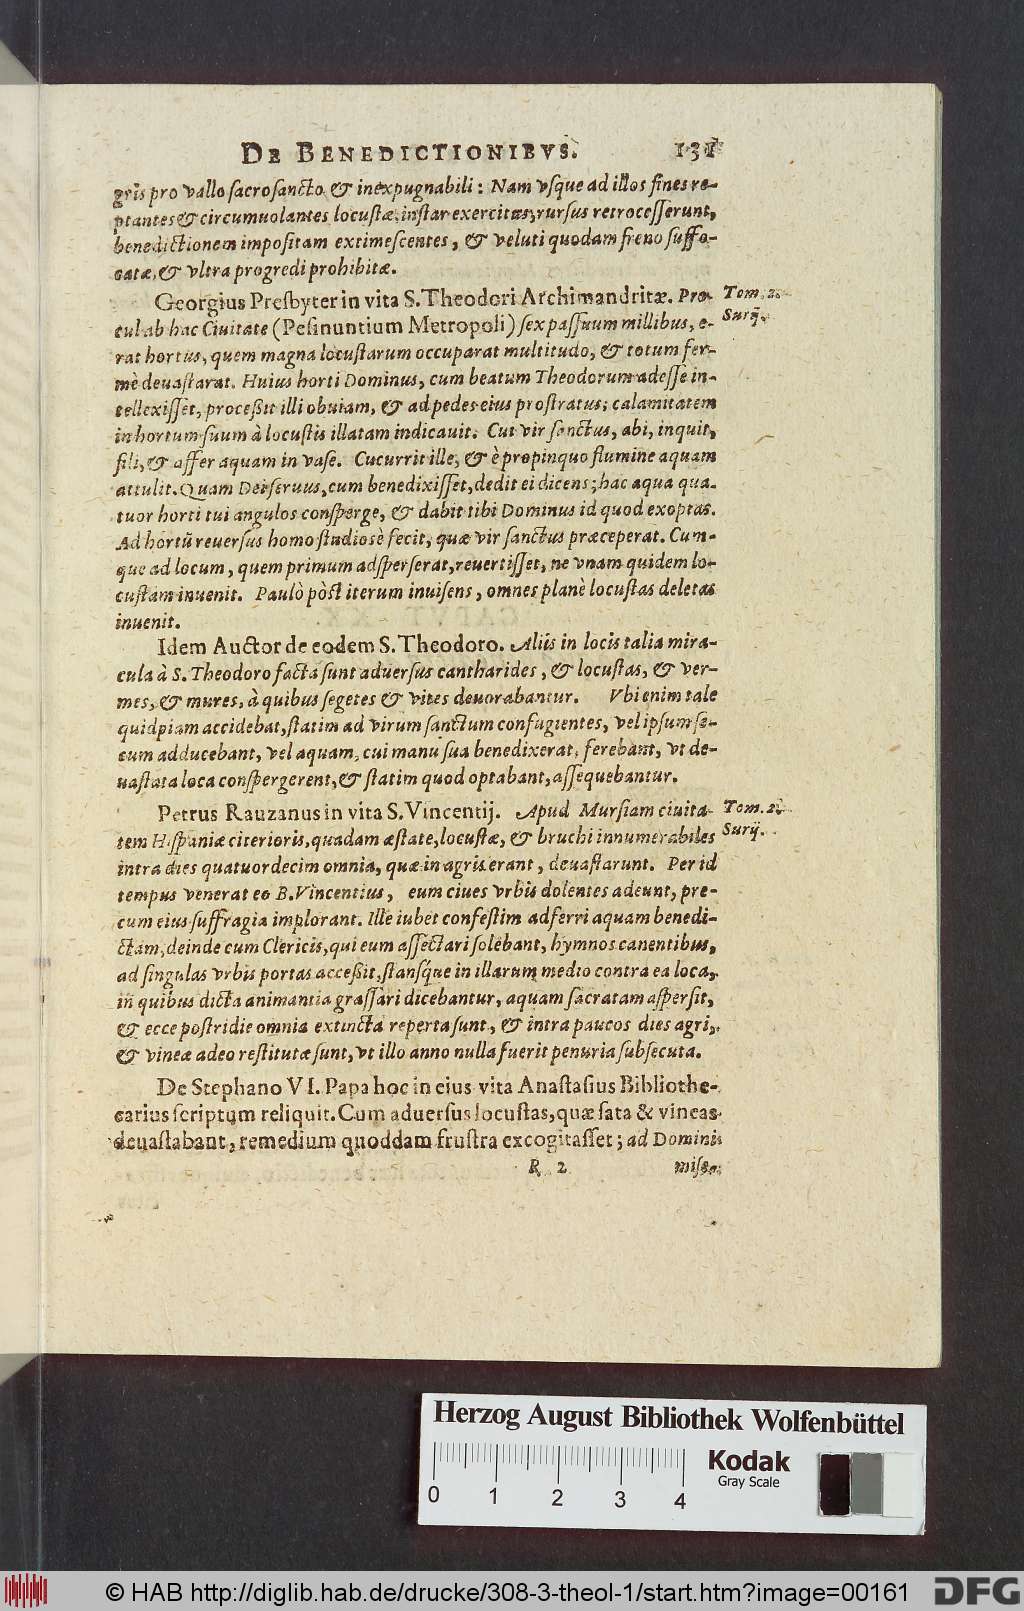 DE BENEDICTIONIBVS. 131
gris pro vallo sacrosancto & inexpugnabili: Nam vsque ad illos fines re-
ptantes & circumuolantes locustæ, instar exercitus, rursus retrocesserunt,
benedictionem impositam extimescentes, & veluti quodam freno suffo-
catæ, & vltra progredi prohibitæ.
Georgius Presbyter in vita S. Theodori Archimandritæ. Pro-
cul ab hac Ciuitate (Pesinuntium Metropoli) sex passuum millibus, e-
rat hortus, quem magna locustarum occuparat multitudo, & totum fer-
mè deuastarat. Huius horti Dominus, cum beatum Theodorum adesse in-
tellexisset, processit illi obuiam, & ad pedes eius prostratus; calamitatem
in hortum suum à locustis illatam indicauit. Cui vir sanctus, abi, inquit,
fili, & affer aquam in vase. Cucurrit ille, & è propinquo flumine aquam
attulit. Quam Dei seruus, cum benedixisset, dedit ei dicens; hac aqua qua-
tuor horti tui angulos consperge, & dabit tibi Dominus id quod exoptas.
Ad hortū reuersus homo studiosè fecit, quæ vir sanctus præceperat. Cum-
que ad locum, quem primum adsperserat, reuertisset, ne vnam quidem lo-
custam inuenit. Paulò pòst iterum inuisens, omnes planè locustas deletas
inuenit.
Tom. 2.
Surij.
Idem Auctor de eodem S. Theodoro. Aliis in locis talia mira-
cula à S. Theodoro facta sunt aduersus cantharides, & locustas, & ver-
mes, & mures, à quibus segetes & vites deuorabantur. Vbi enim tale
quidpiam accidebat, statim ad virum sanctum confugientes, vel ipsum se-
cum adducebant, vel aquam, cui manu sua benedixerat, ferebant, vt de-
uastata loca conspergerent, & statim quod optabant, assequebantur.
Petrus Rauzanus in vita S. Vincentij. Apud Mursiam ciuita-
tem Hispaniæ citerioris, quadam æstate, locustæ, & bruchi innumerabiles
intra dies quatuordecim omnia, quæ in agris erant, deuastarunt. Per id
tempus venerat eo B. Vincentius, eum ciues vrbis dolentes adeunt, pre-
cum eius suffragia implorant. Ille iubet confestim adferri aquam benedi-
ctam, deinde cum Clericis, qui eum assectari solebant, hymnos canentibus,
ad singulas vrbis portas accessit, stansq́ue in illarum medio contra ea loca,
in quibus dicta animantia grassari dicebantur, aquam sacratam aspersit,
& ecce postridie omnia extincta reperta sunt, & intra paucos dies agri,
& vineæ adeo restitutæ sunt, vt illo anno nulla fuerit penuria subsecuta.
Tom. 2.
Surij.
De Stephano VI. Papa hoc in eius vita Anastasius Bibliothe-
carius scriptum reliquit. Cum aduersus locustas, quæ sata & vineas
deuastabant, remedium quoddam frustra excogitasset; ad Domini
R 2 mise-
Herzog August Bibliothek Wolfenbüttel
Kodak
Gray Scale
0 1 2 3 4
© HAB http://diglib.hab.de/drucke/308-3-theol-1/start.htm?image=00161
DFG